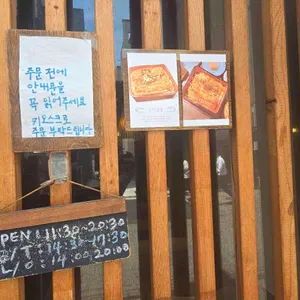 주문 전에
안내문을
꼭 읽어주세요
키오스크로
주문 부탁드립니다
OPEN 11:30-20:30
B/T 14:30-17:30
L/O 14:00, 20:00